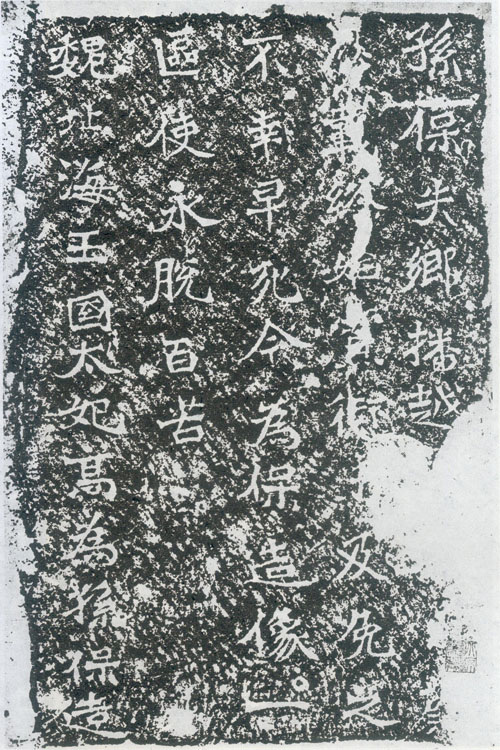 孫保失鄉播越
終始 及免之
不幸早死今為保造像一
區使永脫百苦
魏北海王国太妃高為孫保造